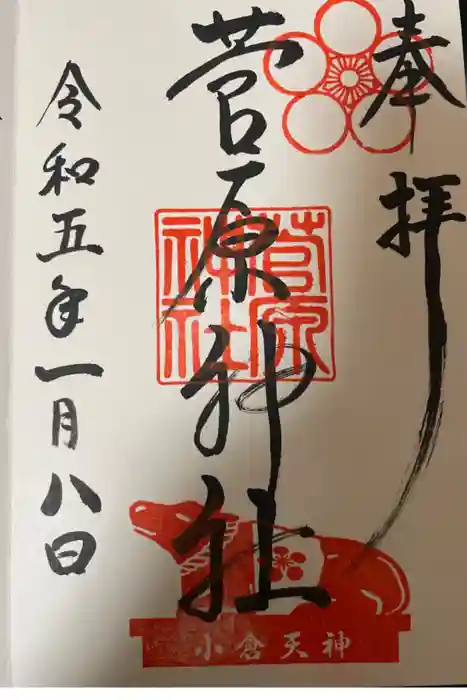 奉拝
菅原神社
菅原
神社
令和五年一月八日
小倉天神